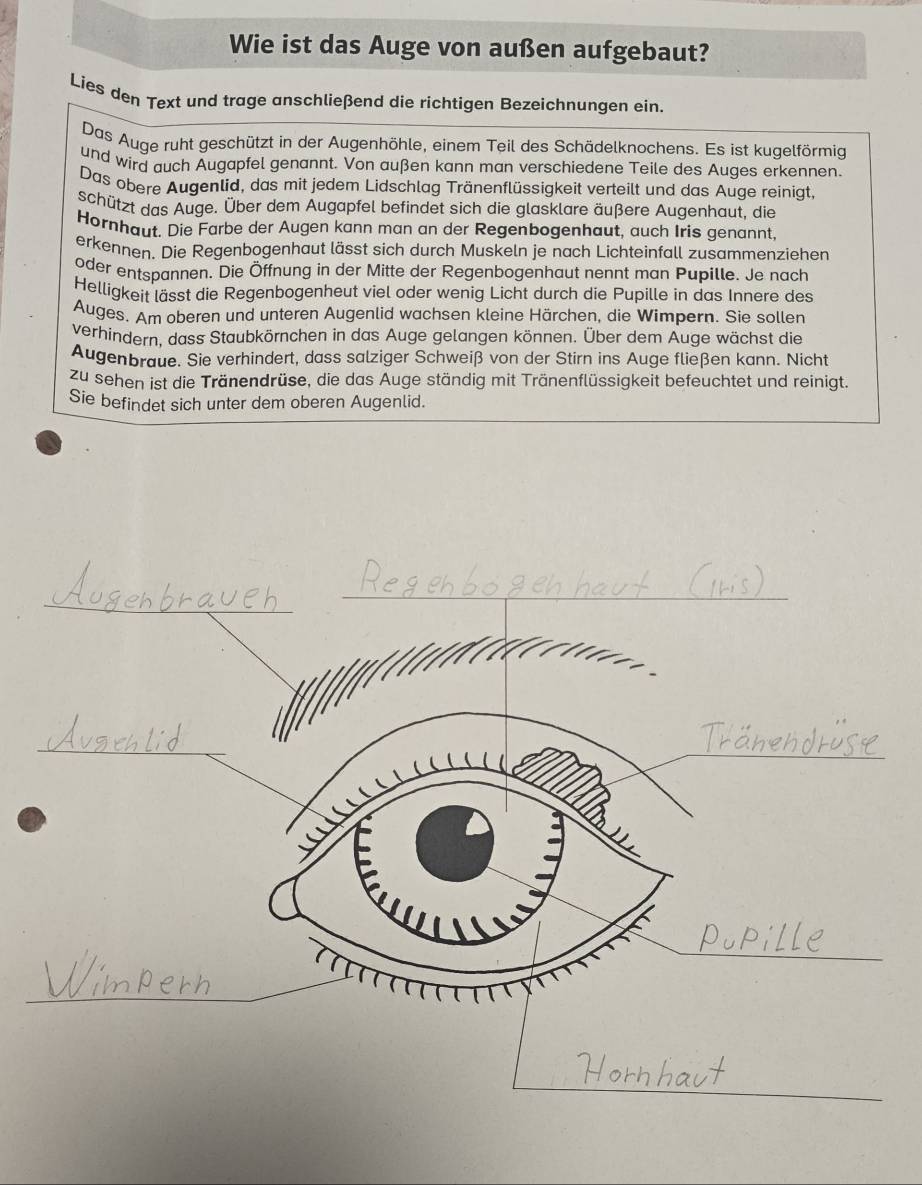 Wie ist das Auge von außen aufgebaut?
Lies den Text und trage anschließend die richtigen Bezeichnungen ein.
Das Auge ruht geschützt in der Augenhöhle, einem Teil des Schädelknochens. Es ist kugelförmig
und wird auch Augapfel genannt. Von außen kann man verschiedene Teile des Auges erkennen.
Das obere Augenlid, das mit jedem Lidschlag Tränenflüssigkeit verteilt und das Auge reinigt,
schützt das Auge. Über dem Augapfel befindet sich die glasklare äußere Augenhaut, die
Hornhaut. Die Farbe der Augen kann man an der Regenbogenhaut, auch Iris genannt,
erkennen. Die Regenbogenhaut lässt sich durch Muskeln je nach Lichteinfall zusammenziehen
oder entspannen. Die Öffnung in der Mitte der Regenbogenhaut nennt man Pupille. Je nach
Helligkeit lässt die Regenbogenheut viel oder wenig Licht durch die Pupille in das Innere des
Auges. Am oberen und unteren Augenlid wachsen kleine Härchen, die Wimpern. Sie sollen
verhindern, dass Staubkörnchen in das Auge gelangen können. Über dem Auge wächst die
Augenbraue. Sie verhindert, dass salziger Schweiß von der Stirn ins Auge fließen kann. Nicht
zu sehen ist die Tränendrüse, die das Auge ständig mit Tränenflüssigkeit befeuchtet und reinigt.
Sie befindet sich unter dem oberen Augenlid.
Augenbrauen
Regenbogenhaut (Iris)
Augenlid
Tränendrüse
Pupille
Wimpern
Hornhaut